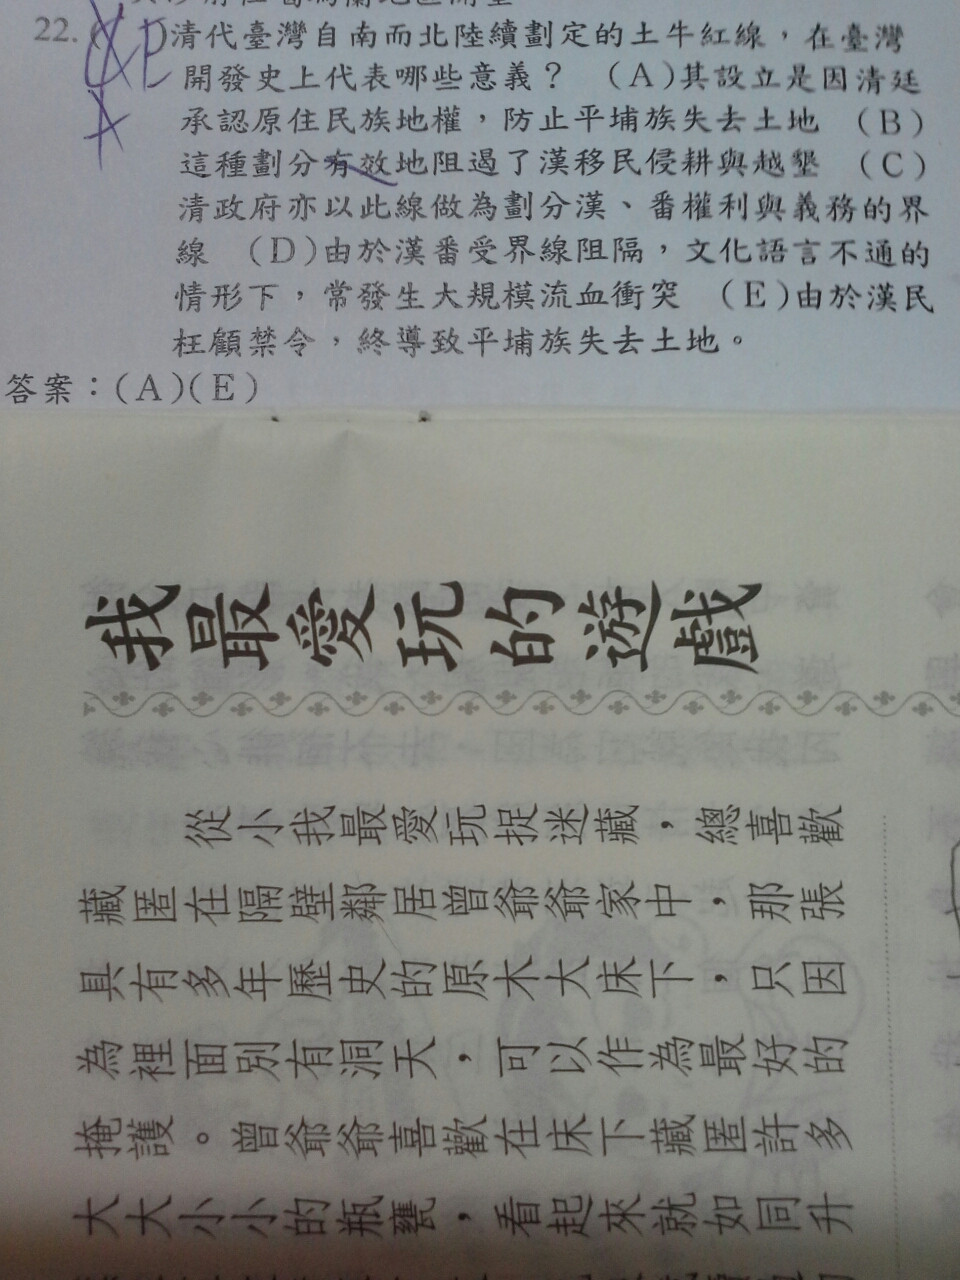 22.
清代臺灣自南而北陸續劃定的土牛紅線，在臺灣
開發史上代表哪些意義？　(A)其設立是因清廷
承認原住民族地權，防止平埔族失去土地　(B)
這種劃分有效地阻遏了漢移民侵耕與越墾　(C)
清政府亦以此線做為劃分漢、番權利與義務的界
線　(D)由於漢番受界線阻隔，文化語言不通的
情形下，常發生大規模流血衝突　(E)由於漢民
枉顧禁令，終導致平埔族失去土地。
答案：(A)(E)
我最愛玩的遊戲
從小我最愛玩捉迷藏，總喜歡
藏匿在隔壁鄰居曾爺爺家中，那張
具有多年歷史的原木大床下，只因
為裡面別有洞天，可以作為最好的
掩護。曾爺爺喜歡在床下藏匿許多
大大小小的瓶甕，看起來就如同升